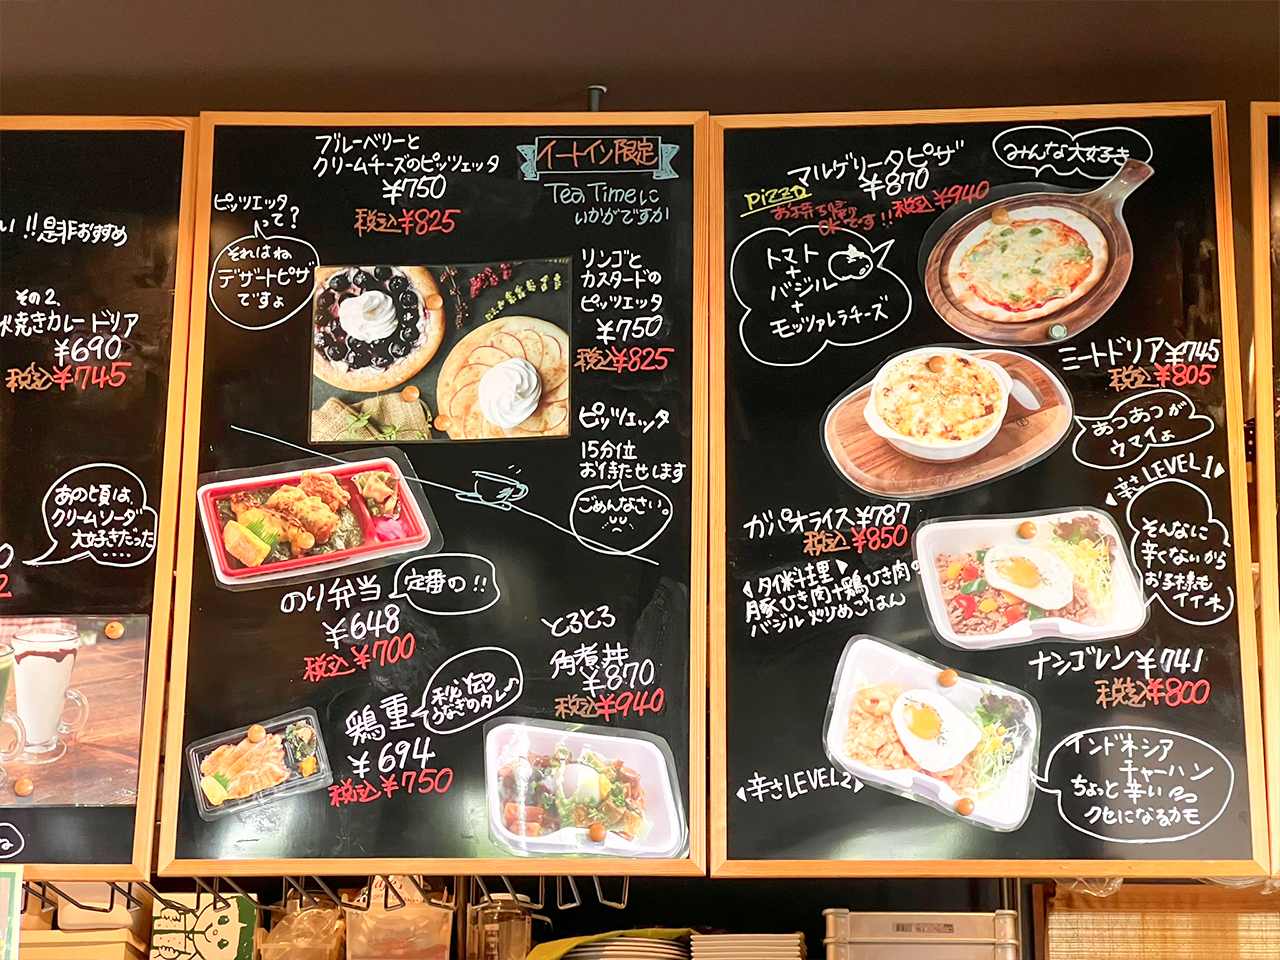 い!!是非おすすめ
その2、
焼きカレードリア
¥690
税込¥745
あの頃は、
クリームソーダ
大好きだった
....
2
ね
ブルーベリーと
クリームチーズのピッツェッタ
¥750
税込¥825
イートイン限定
Tea Timeに
いかがですか
ピッツェッタ
って?
それはね
デザートピザ
ですよ
リンゴと
カスタードの
ピッツェッタ
¥750
税込¥825
ピッツェッタ
15分位
お待たせします
ごめんなさい。
のり弁当
定番の!!
¥648
税込¥700
鶏重
秘伝の
うなぎのタレ♪
¥694
税込¥750
とろとろ
角煮丼
¥870
税込¥940
マルゲリータピザ
¥870
税込¥940
PIZZA
お持ち帰り
OKです!!
みんな大好き
トマト
+
バジル
+
モッツァレラチーズ
ミートドリア¥745
税込¥805
あつあつが
ウマイよ
辛さLEVEL1
ガパオライス¥787
税込¥850
タイ料理
豚ひき肉+鶏ひき肉の
バジル炒りめごはん
そんなに
辛くないから
お子様も
イイネ
ナシゴレン¥741
税込¥800
辛さLEVEL2
インドネシア
チャーハン
ちょっと辛い
クセになるカモ